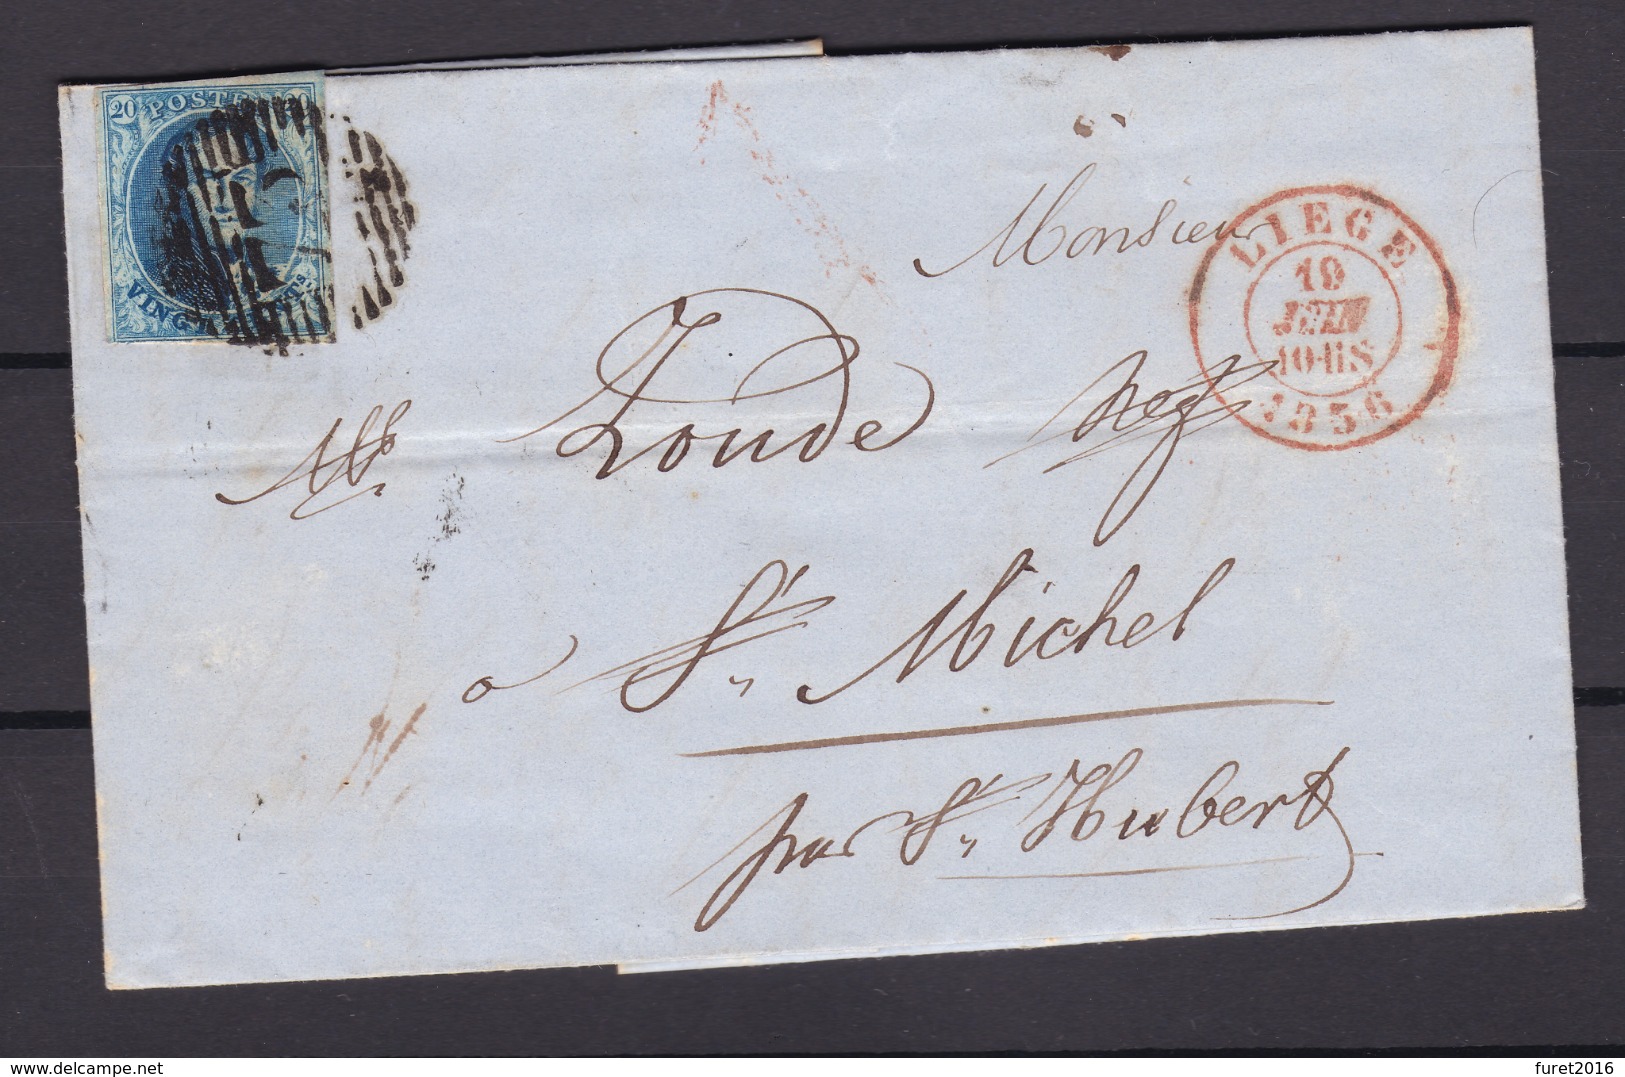 20 POSTES 20
VINGT
73
Monsieur
LIEGE
19
JUIN
10-11S
1856
Zoude
à St Michel
par St Hubert
www.delcampe.net
furet2016